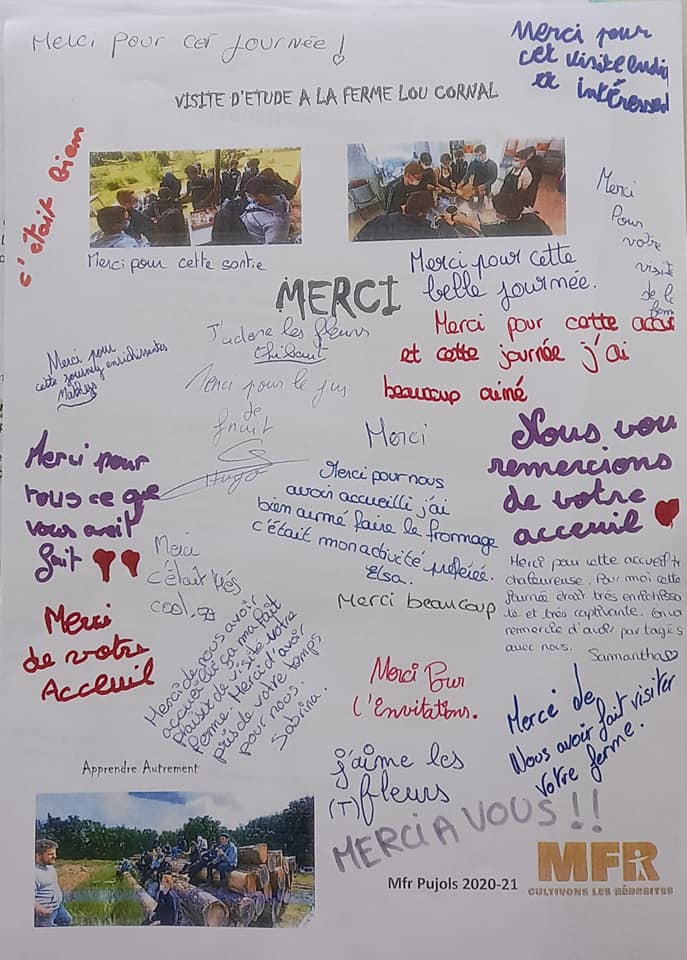 Merci pour cet journée !
Merci pour
cet visite ludiq
et intéressen
VISITE D'ETUDE A LA FERME LOU CORNAL
c'était bien
Merci pour cette sortie
Merci pour cette
belle journée.
Merci
Pour
votre
visite
de la
ferm
MERCI
J'adore les fleurs
Thibaut
Merci pour cette accue
et cette journée j'ai
beaucoup aimé
Merci pour
cette journey enrichissantes
Mathys
Merci pour le jus
de
fruit
Hugo
Merci
Nous vou
remercions
de votre
acceuil
Merci pour
tous ce que
vous avait
fait
Merci pour nous
avoir accueilli j'ai
bien aimé faire le fromage
c'était mon activité préférée.
Elsa.
Merci
c'était très
cool.
Merci pour cette accueil tr
chaleureuse. Pour moi cette
journée était très enrichissa
te et très captivante. On vo
remercie d'avoir partagés
avec nous.
Samantha
Merci beaucoup
Merci
de votre
Acceuil
Merci de nous avoir
accueilli ça ma fait
plaisir de visité votre
ferme. Merci d'avoir
pris de votre temps
pour nous.
Sabrina.
Merci Pour
l'Invitations.
Merci de
Nous avoir fait visiter
votre ferme.
j'aime les
(T) fleurs
Apprendre Autrement
MERCI A VOUS !!
Mfr Pujols 2020-21
MFR
CULTIVONS LES RÉUSSITES